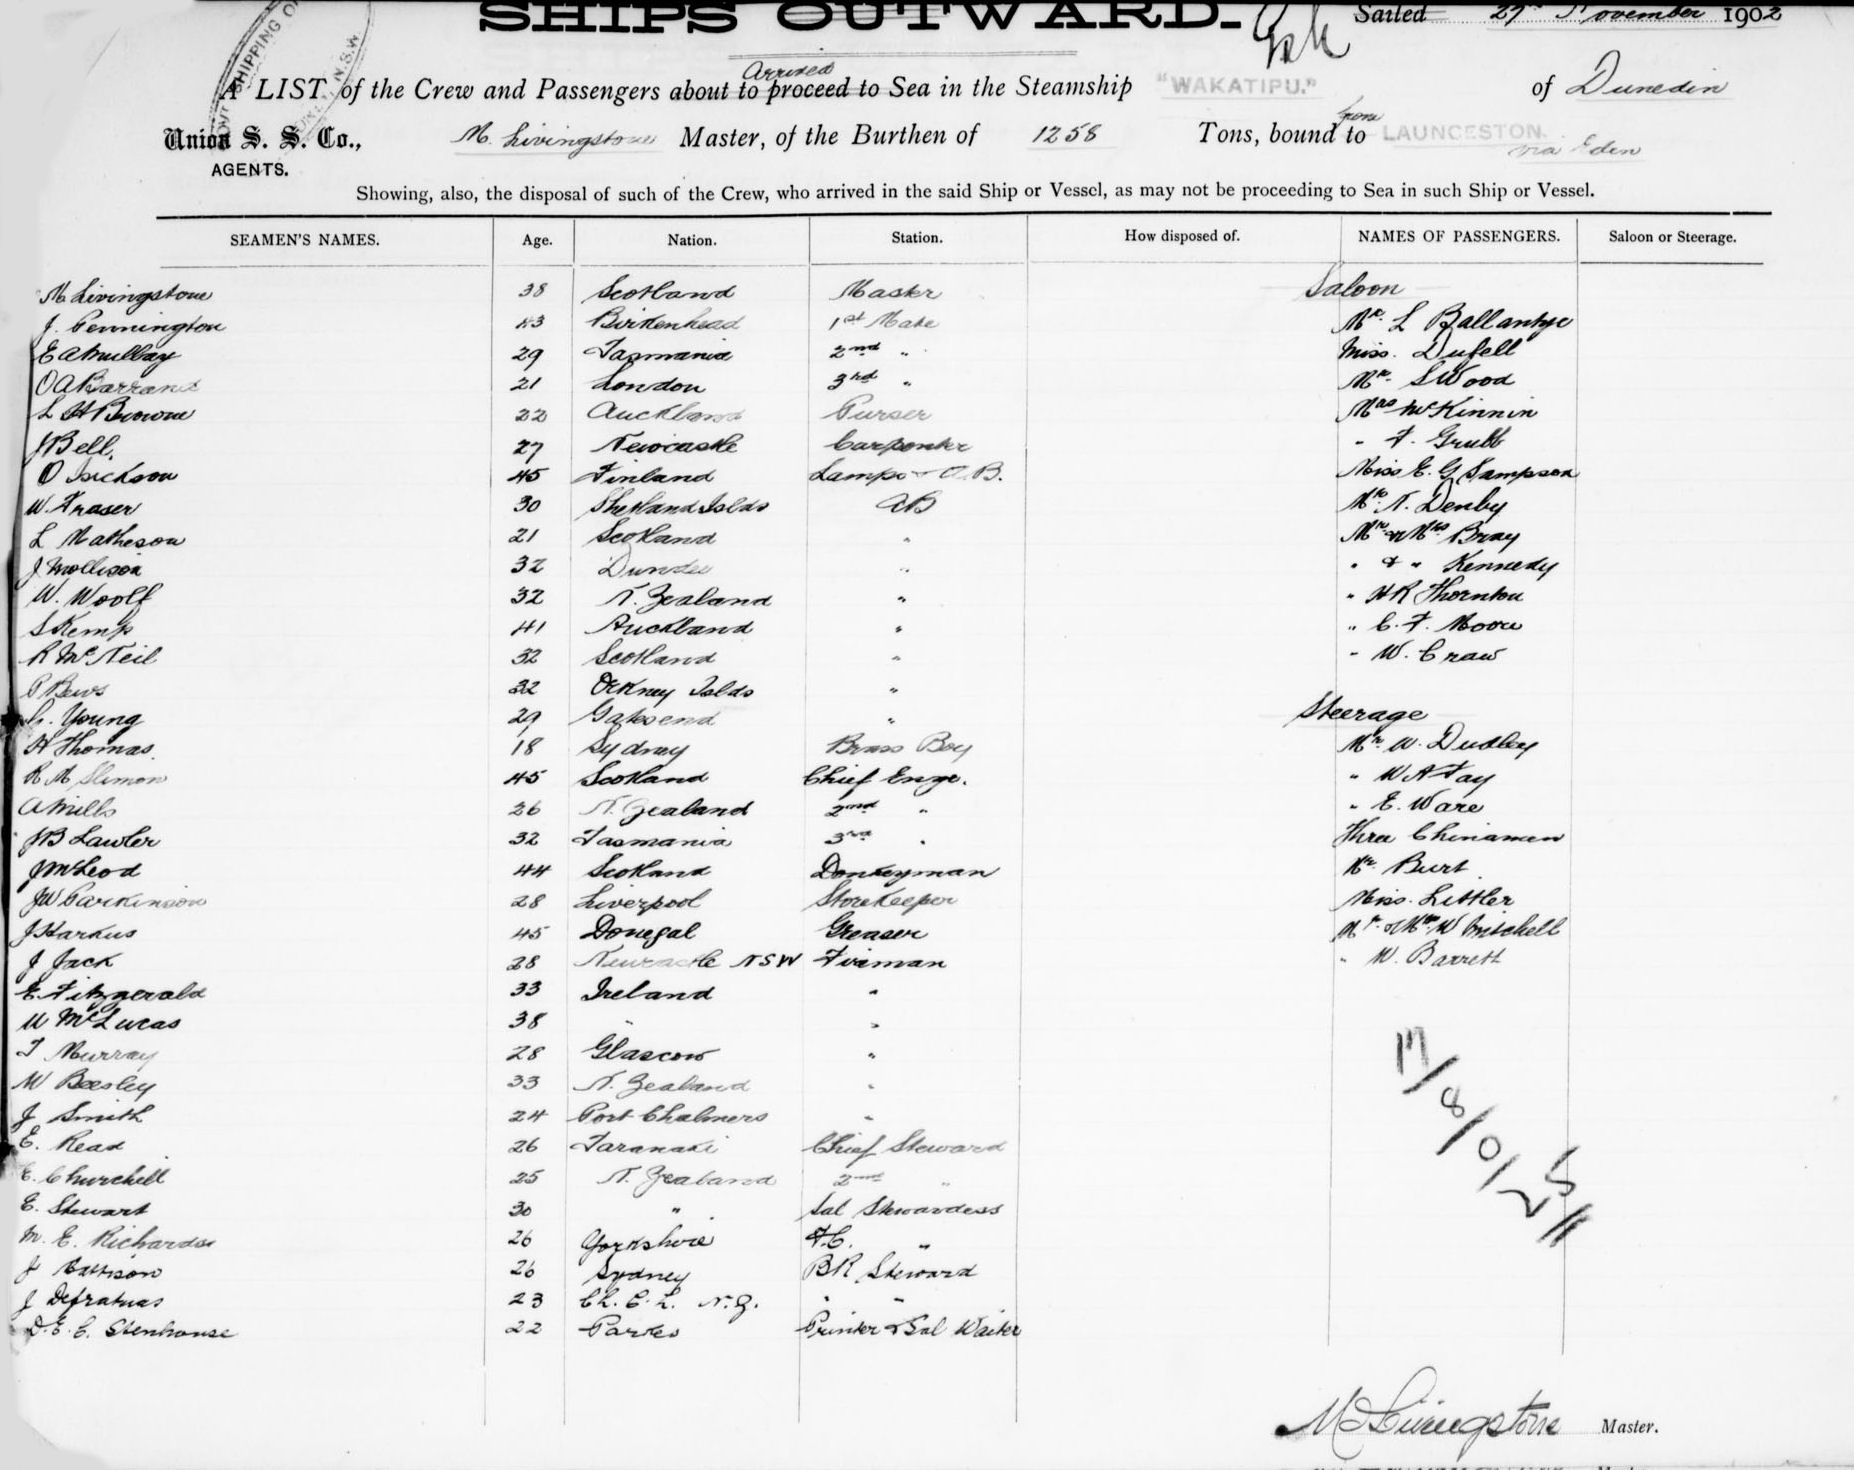 SHIPS OUTWARD.
Sailed 27th November 1902
SHIPPING O
N.S.W.
arrived
A LIST of the Crew and Passengers about to proceed to Sea in the Steamship "WAKATIPU." of Dunedin
from
Union S. S. Co., M. Livingstone Master, of the Burthen of 1258 Tons, bound to LAUNCESTON.
via Eden
AGENTS.
Showing, also, the disposal of such of the Crew, who arrived in the said Ship or Vessel, as may not be proceeding to Sea in such Ship or Vessel.
SEAMEN'S NAMES. Age. Nation. Station. How disposed of. NAMES OF PASSENGERS. Saloon or Steerage.
M Livingstone 38 Scotland Master Saloon
J. Pennington 43 Birkenhead 1st Mate Mr. L Ballantyе
E A Mulbay 29 Tasmania 2nd " Miss. Dufell
O A Barrand 21 London 3rd " Mr. S Wood
L H Browne 22 Auckland Purser Mrs McKinnin
J Bell. 27 Newcastle Carpenter " F. Grubb
O Isickson 45 Finland Lamps & A.B. Miss E. G Sampson
W. Fraser 30 Shetland Islds AB Mr. N. Denby
L Matheson 21 Scotland " Mr & Mrs Bray
J Mollison 32 Dundee " " & " Kennedy
W. Woolf 32 N. Zealand " " H R Thornton
S Kemp 41 Auckland " " C. F. Moore
R McNeil 32 Scotland " " W. Craw
P Bews 32 Orkney Islds "
Young 29 Gatesend " Steerage
H Thomas. 18 Sydney Brass Boy Mr. W. Dudley
R M Slimon 45 Scotland Chief Enge. " W A Fay
A Mills 26 N. Zealand 2nd " " E. Ware
J B Lawler 32 Tasmania 3rd " Three Chinamen
J McLeod 44 Scotland Donkeyman Mr. Burt
J W Parkinson 28 Liverpool Storekeeper Miss. Littler
J Harkus 45 Donegal Greaser Mr. & Mrs W Mitchell
J Jack 28 Newcastle NSW Fireman " W. Barrett
E. Fitzgerald 33 Ireland "
W McLucas 38 " "
T Murray 28 Glascow "
W Beesley 33 N. Zealand "
J Smith 24 Port Chalmers "
E. Read 26 Taranaki Chief Steward
E. Churchill 25 N. Zealand 2nd "
E. Stewart 30 " Sal Stewardess
M. E. Richards 26 Yorkshire F.C. "
J Cattison 26 Sydney BR Steward
J Defratuas 23 Ch. C. H. N.Z. " "
D. E. C. Stenhouse 22 Parkes Printer & Sal Waiter
M Livingstone Master.